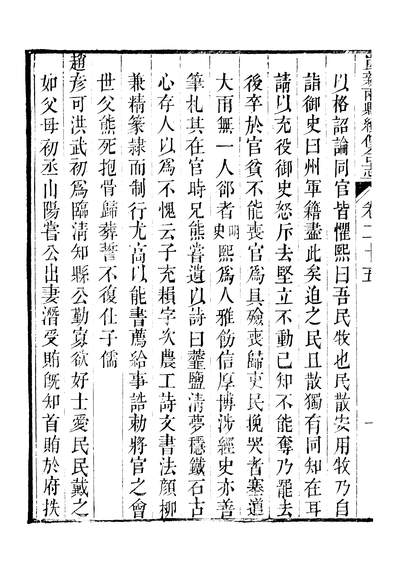 以格詔諭同官皆懼熙曰吾民牧也民散安用牧乃自
詣御史曰州軍籍盡此矣迫之民且散獨有同知在耳
請以充役御史怒斥去堅立不動已知不能奪乃罷去
後卒於官貧不能喪官為具殮喪歸吏民挽哭者塞道
大雨無一人郤者明史熙為人雅飭信厚博涉經史亦善
筆札其在官時兄熊嘗遺以詩曰虀鹽清夢穩鐵石古
心存人以為不愧云子充賴字次農工詩文書法顏柳
兼精篆隸而制行尤高以能書薦給事誥勅將官之會
世父熊死抱骨歸葬誓不復仕子儒
趙彥可洪武初為臨清知縣公勤寡欲好士愛民民戴之
如父母初丞山陽嘗公出妻潛受賄旣知首賄於府抶
卷二十五
一